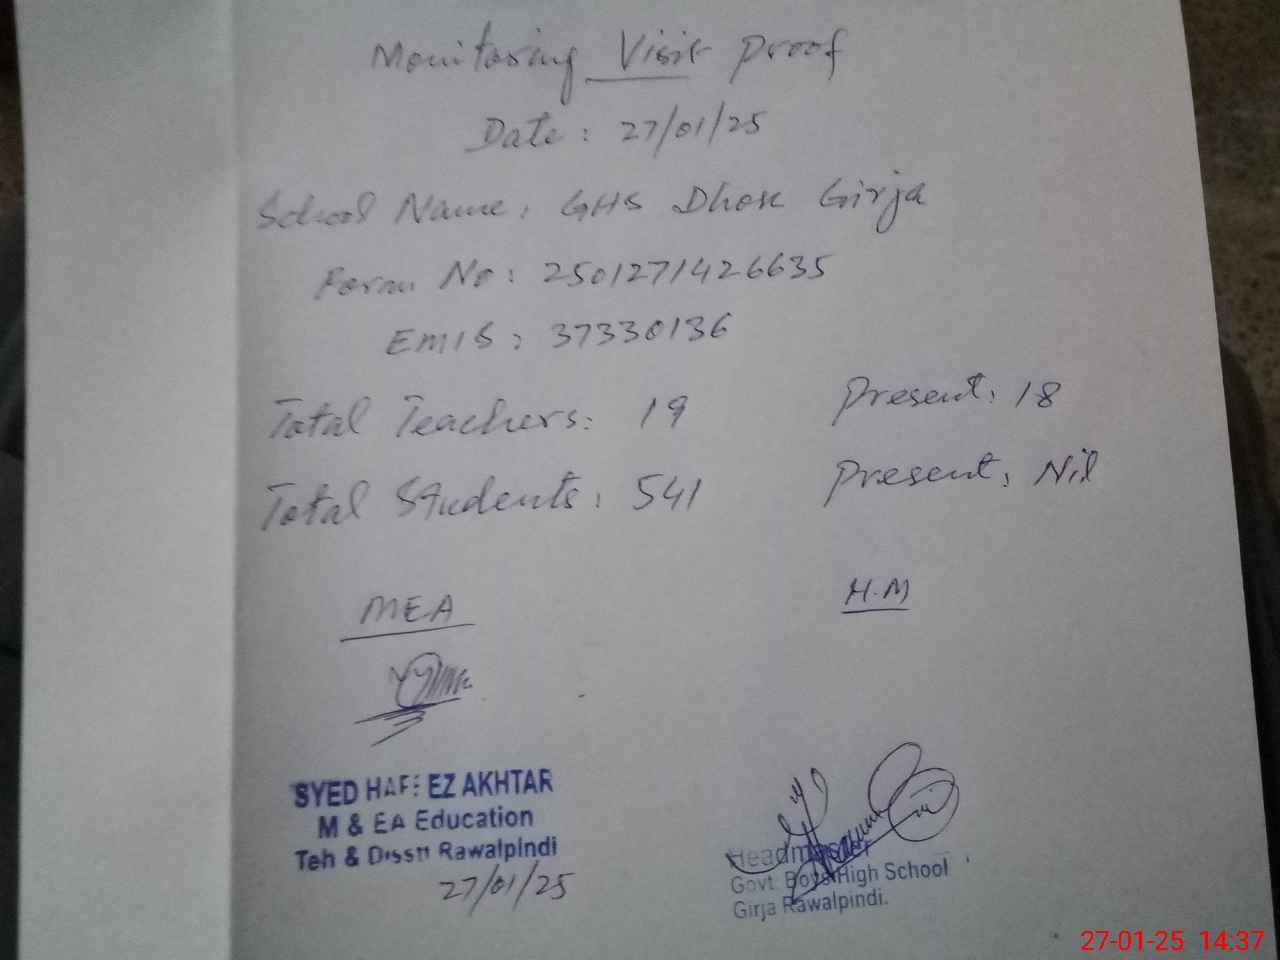 Monitoring Visit Proof
Date: 27/01/25
School Name: GHS Dhok Girja
Form No: 2501271426635
EMIS: 37330136
Total Teachers: 19 Present: 18
Total Students: 541 Present: Nil
MEA H.M
SYED HAFEEZ AKHTAR
M & EA Education
Teh & Disstt Rawalpindi
27/01/25
Headmaster
Govt. Boys High School
Girja Rawalpindi.
27-01-25 14:37